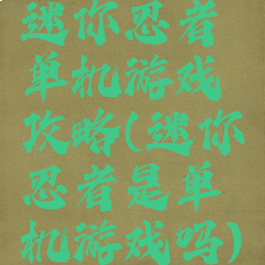 迷你忍者
单机游戏
攻略(迷你
忍者是单
机游戏吗)